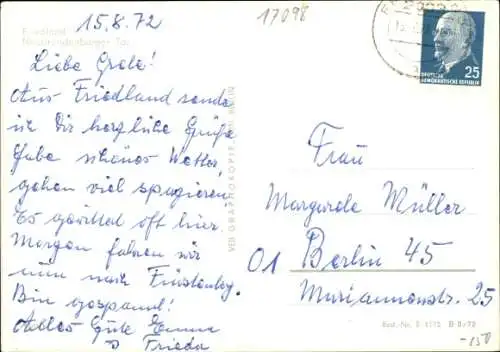 15.8.72
17098
Friedland
Neubrandenburger Tor
Liebe Grete!
Aus Friedland sende
ich Dir herzliche Grüße
Habe schönes Wetter,
gehen viel spazieren.
Es gewittert oft hier.
Morgen fahren wir
nun nach Fürstenberg.
Bin gespannt!
Alles Gute Emma
Frieda
VEB GRAPHOKOPIE BERLIN
25
DEUTSCHE
DEMOKRATISCHE REPUBLIK
Frau
Margarete Müller
01 Berlin 45
Mariannenstr. 25
Best.-Nr. B 8/72
-150